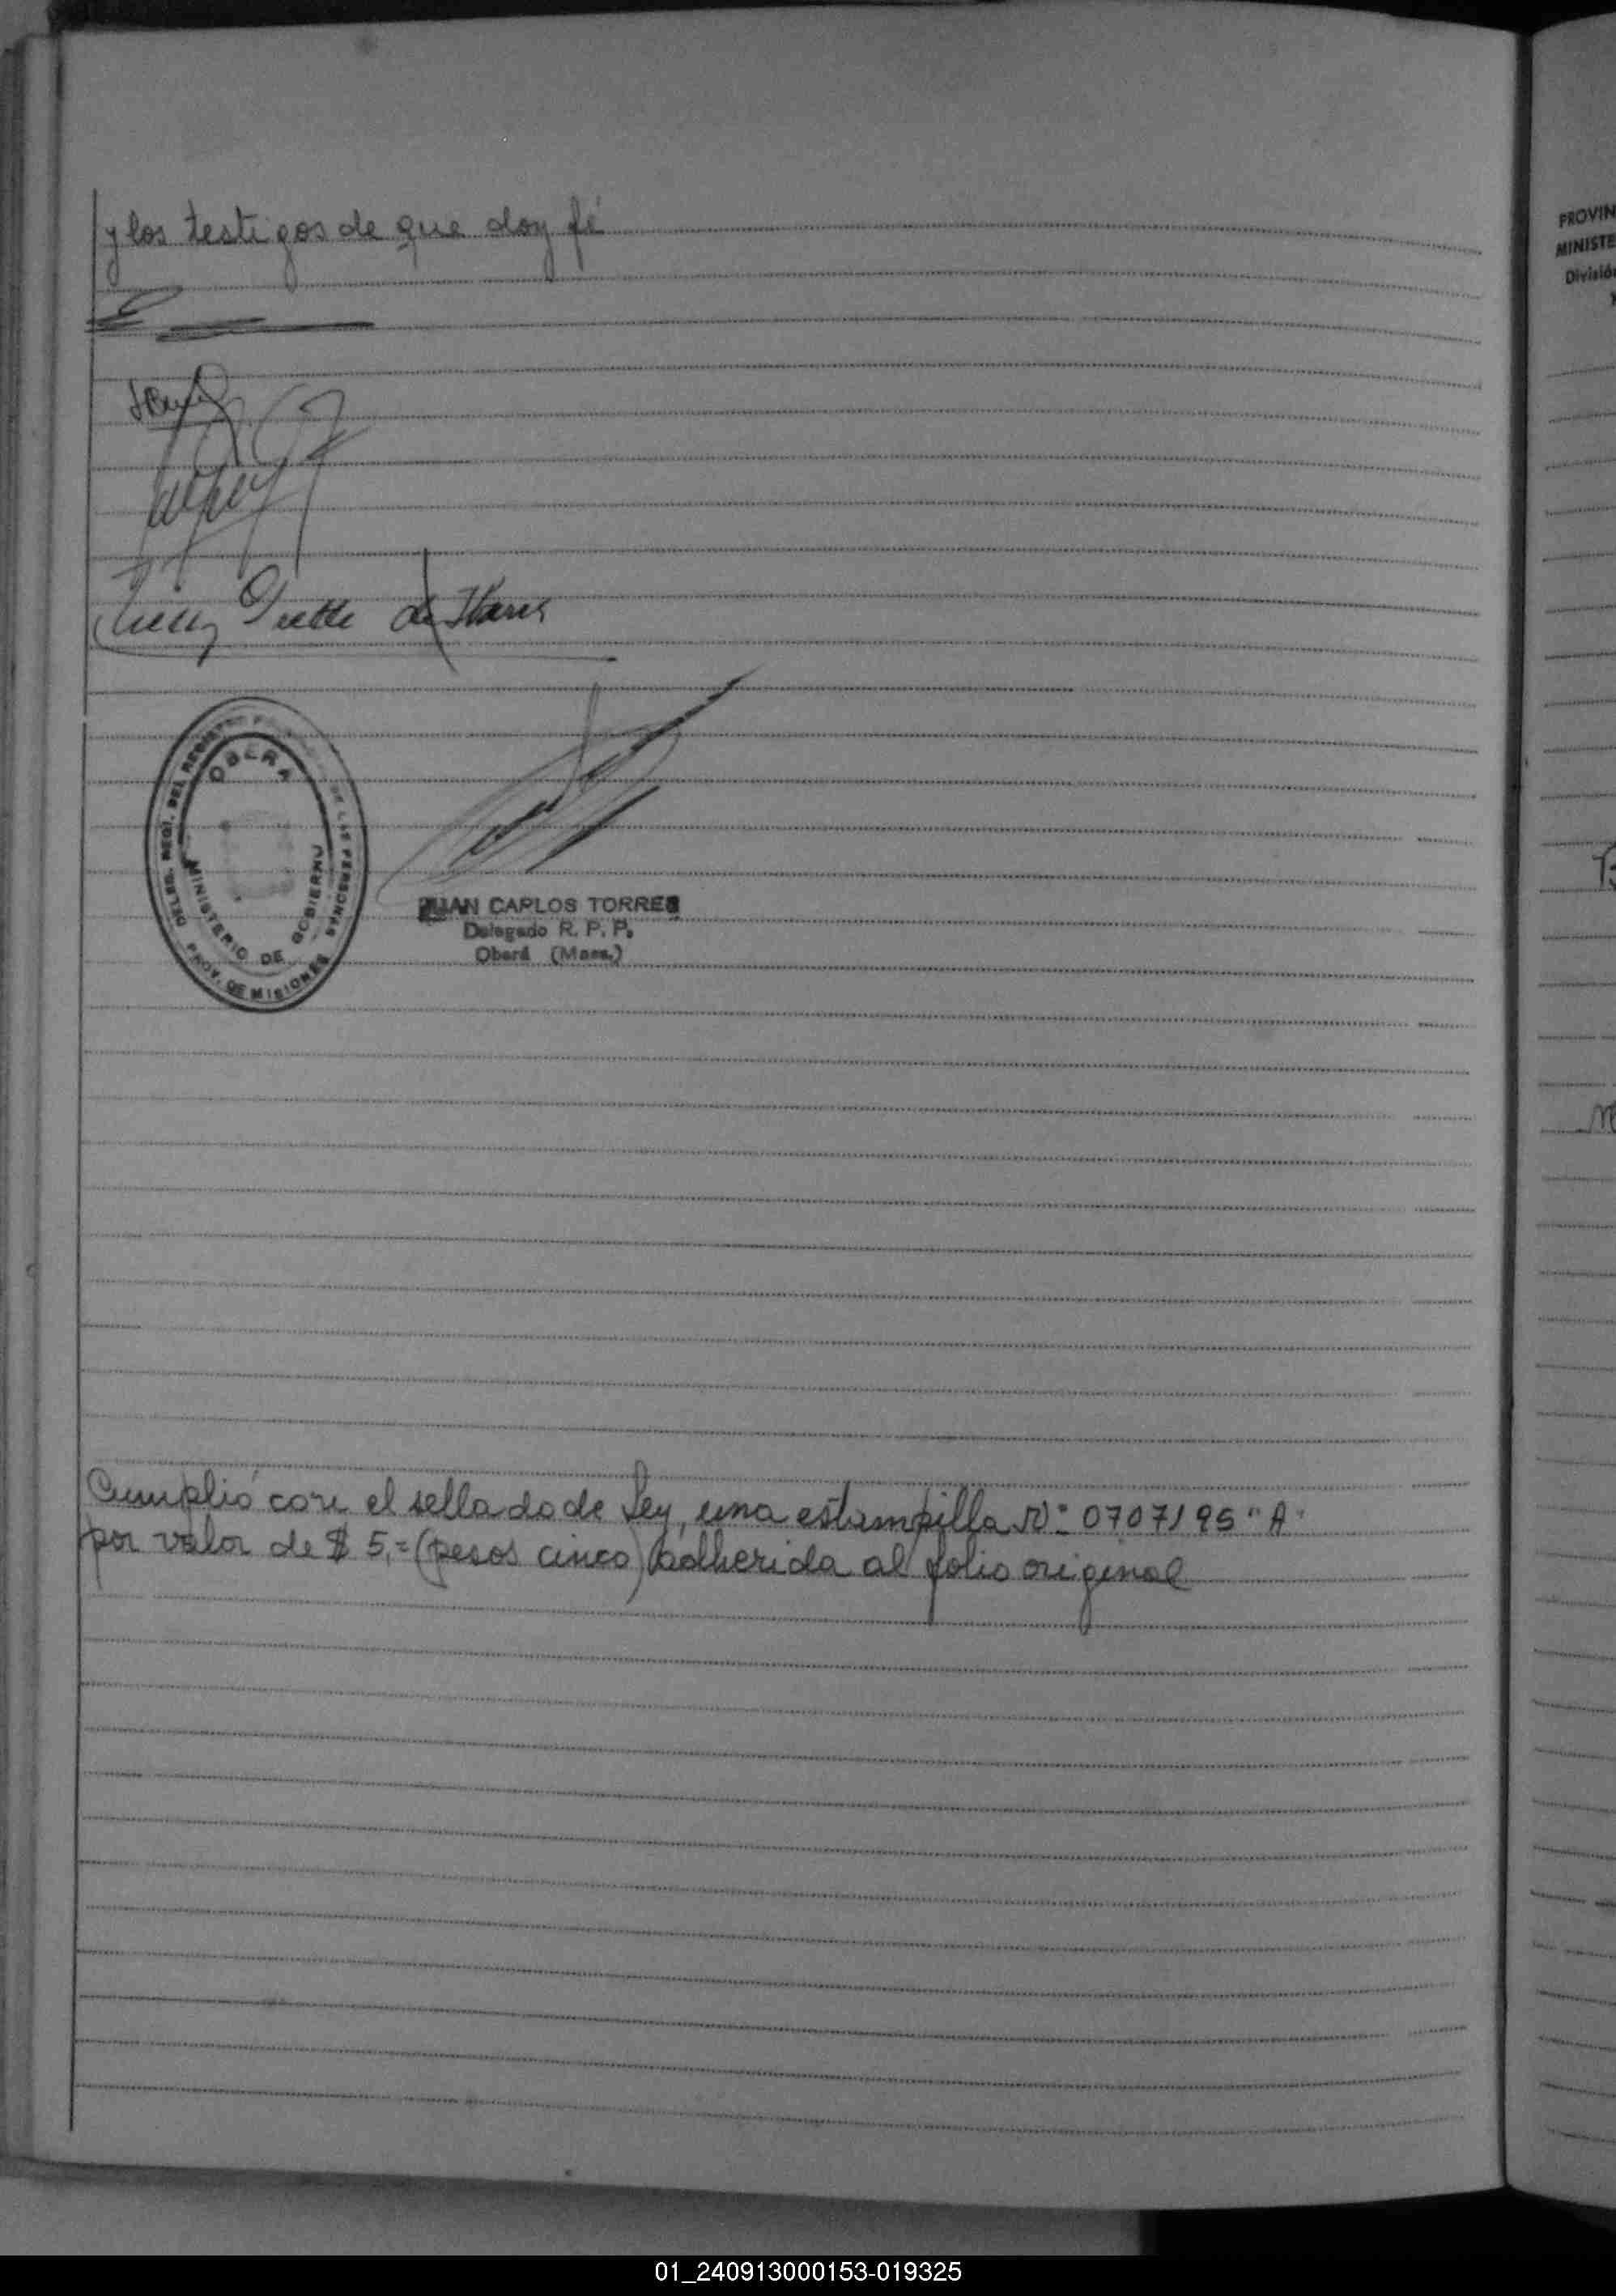 y los testigos de que doy fé
de
OBERA
DELEG. REGI. DEL REGISTRO
DE LAS PERSONAS
MINISTERIO DE GOBIERNO
PROV. DE MISIONES
JUAN CARLOS TORRES
Delegado R. P. P.
Oberá (Mnes.)
Cumplió con el sellado de Ley, una estampilla Nº 0707195 "A"
por valor de $ 5,= (pesos cinco) adherida al folio original
PROVIN
MINISTE
División
01_240913000153-019325